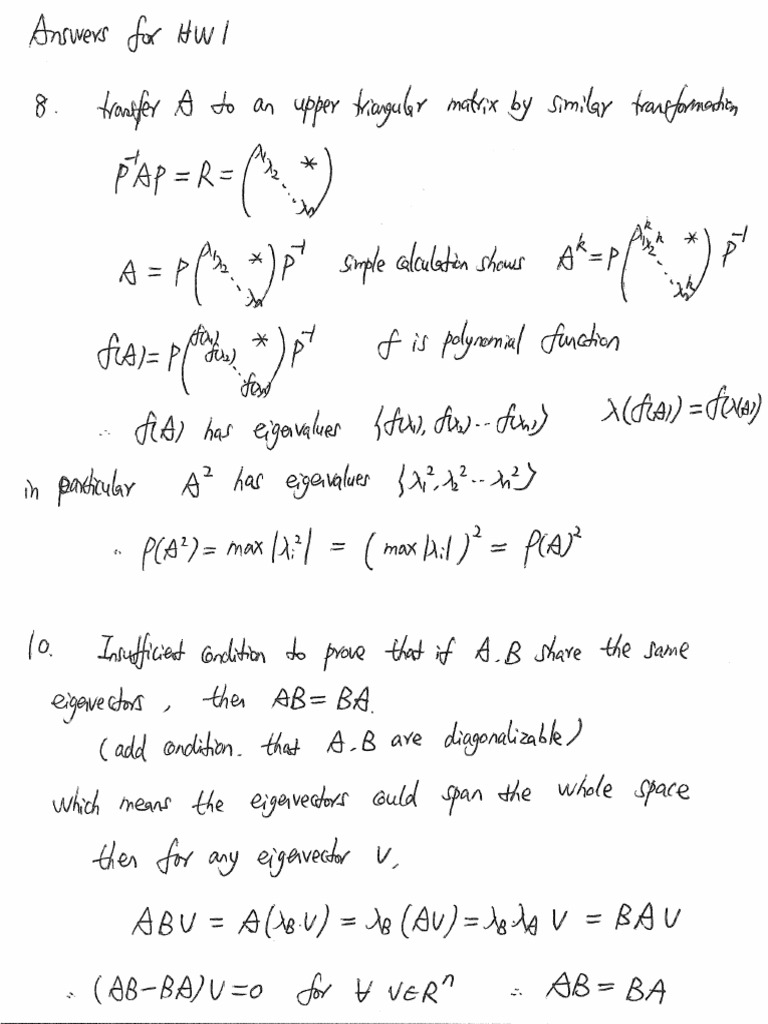 Answers for HW1
8. transfer A to an upper triangular matrix by similar transformation
P⁻¹AP = R = (λ₁ λ₂ ⋱ λₙ *)
A = P(λ₁ λ₂ ⋱ λₙ *)P⁻¹ simple calculation shows Aᵏ = P(λ₁ᵏ λ₂ᵏ ⋱ λₙᵏ *)P⁻¹
f(A) = P(f(λ₁) f(λ₂) ⋱ f(λₙ) *)P⁻¹ f is polynomial function
∴ f(A) has eigenvalues {f(λ₁), f(λ₂)... f(λₙ)} λ(f(A)) = f(λ(A))
in particular A² has eigenvalues {λ₁², λ₂²... λₙ²}
∴ ρ(A²) = max|λᵢ²| = (max|λᵢ|)² = ρ(A)²
10. Insufficient condition to prove that if A.B share the same
eigenvectors, then AB = BA.
(add condition. that A.B are diagonalizable)
which means the eigenvectors could span the whole space
then for any eigenvector v,
ABv = A(λB·v) = λB(Av) = λB·λA v = BAv
∴ (AB-BA)v=0 for ∀ v∈Rⁿ ∴ AB = BA